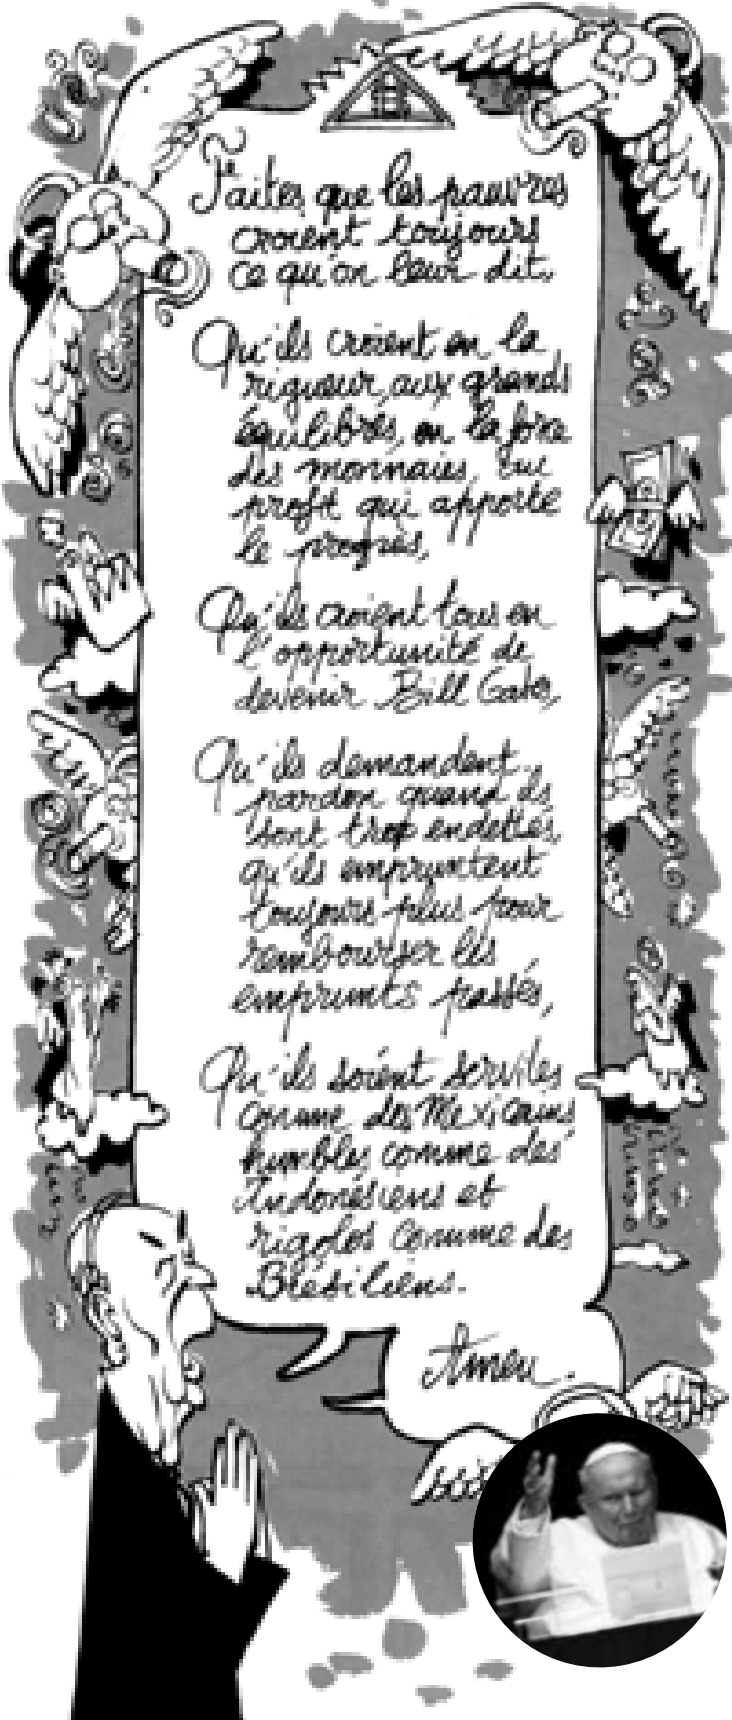 Faites que les pauvres
croient toujours
ce qu'on leur dit,
Qu'ils croient en la
rigueur, aux grands
équilibres, en la force
des monnaies, au
profit qui apporte
le progrès,
Qu'ils croient tous en
l'opportunité de
devenir Bill Gates,
Qu'ils demandent
pardon quand ils
sont trop endettés,
qu'ils empruntent
toujours plus pour
rembourser les
emprunts passés,
Qu'ils soient serviles
comme des Mexicains
humbles comme des
Indonésiens et
rigolos comme des
Brésiliens.
Amen.